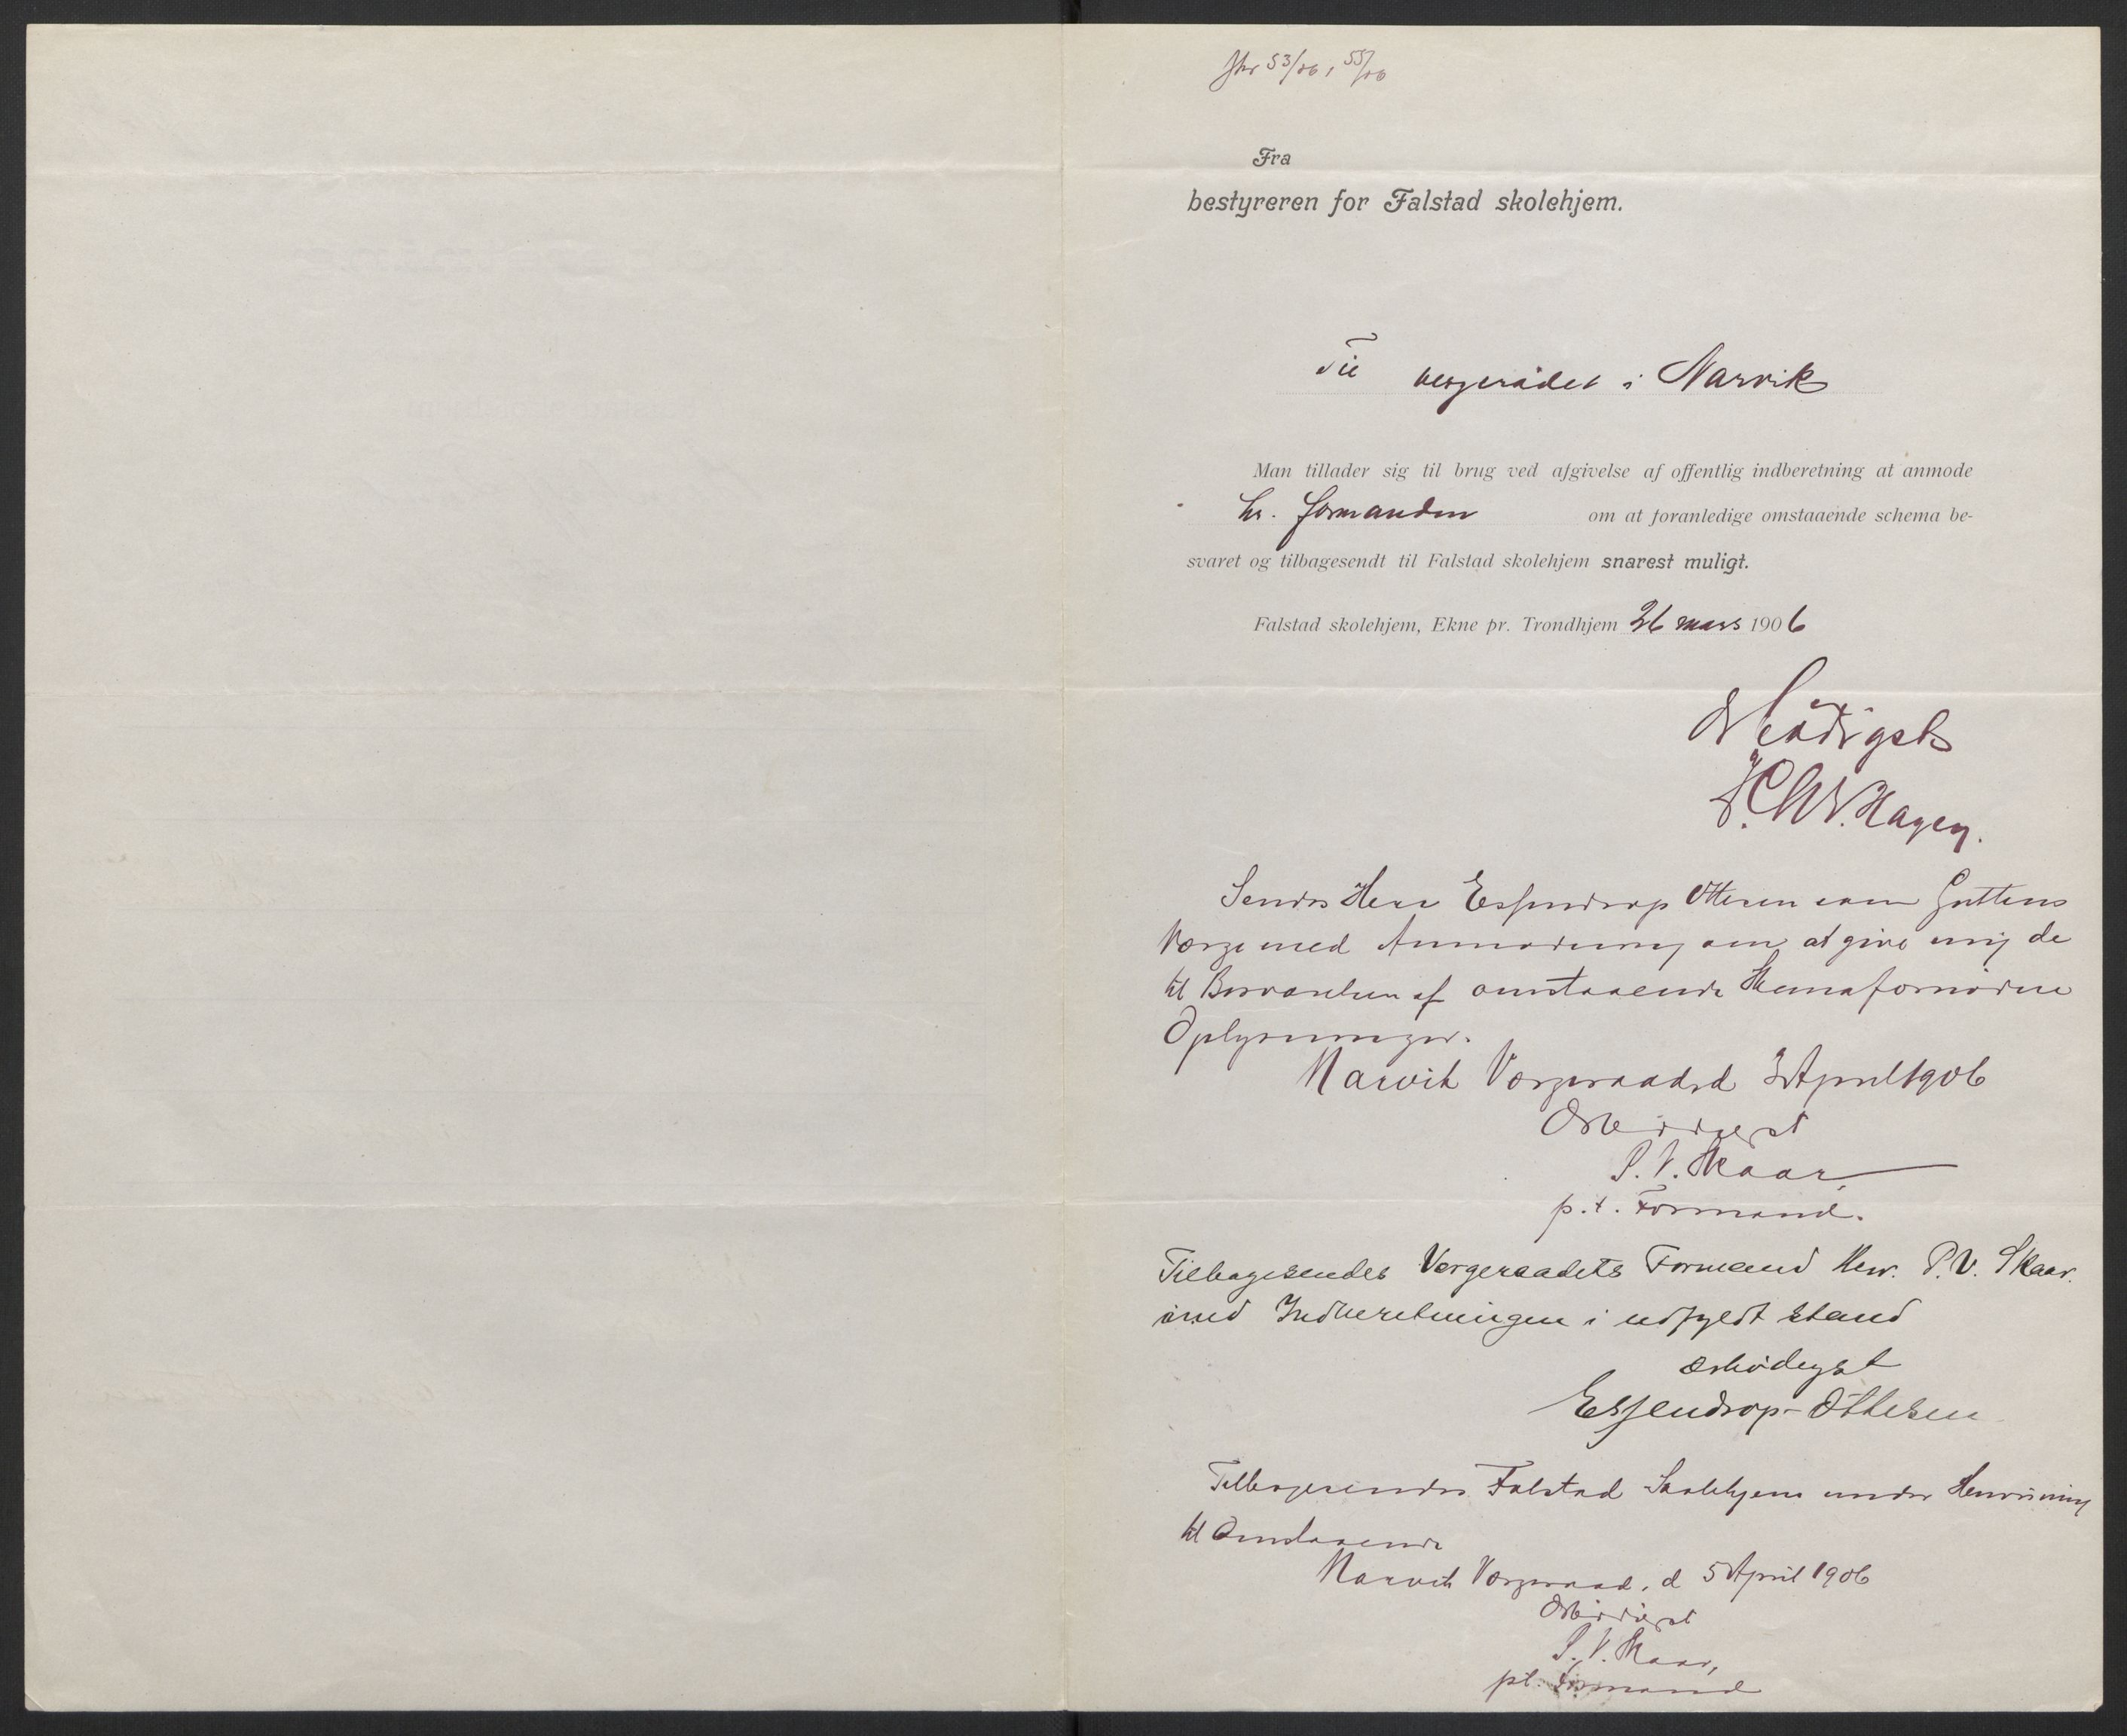 Jnr 53/06, 55/06
Fra
bestyreren for Falstad skolehjem.
Til vergerådet i Narvik
Man tillader sig til brug ved afgivelse af offentlig indberetning at anmode
hr. formanden om at foranledige omstaaende schema be-
svaret og tilbagesendt til Falstad skolehjem snarest muligt.
Falstad skolehjem, Ekne pr. Trondhjem 26 mars 1906
Ærbødigst
Hagen.
Sendes Herr Essendrop Ottesen som Guttens
Værge med Anmodning om at give mig de
til Besvarelsen af omstaaende Skema fornødne
Oplysninger.
Narvik Værgeraad d 3 April 1906
Ærbødigst
P. V. Skaar
p.t. Formand.
Tilbagesendes Vergeraadets Formand Herr. P.V. Skaar.
med Indberetningen i udfyldt stand
ærbødigst
Essendrop-Ottesen
Tilbagesendes Falstad Skolehjem under Henvisning
til Omstaaende
Narvik Værgeraad, d 5 April 1906
Ærbødigst
P. V. Skaar,
pt. Formand